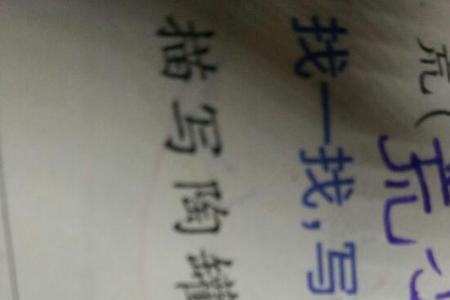 荒(荒
找一找,写
描写陶罐